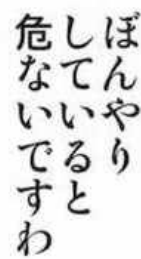 ぼんやり
していると
危ないですわ